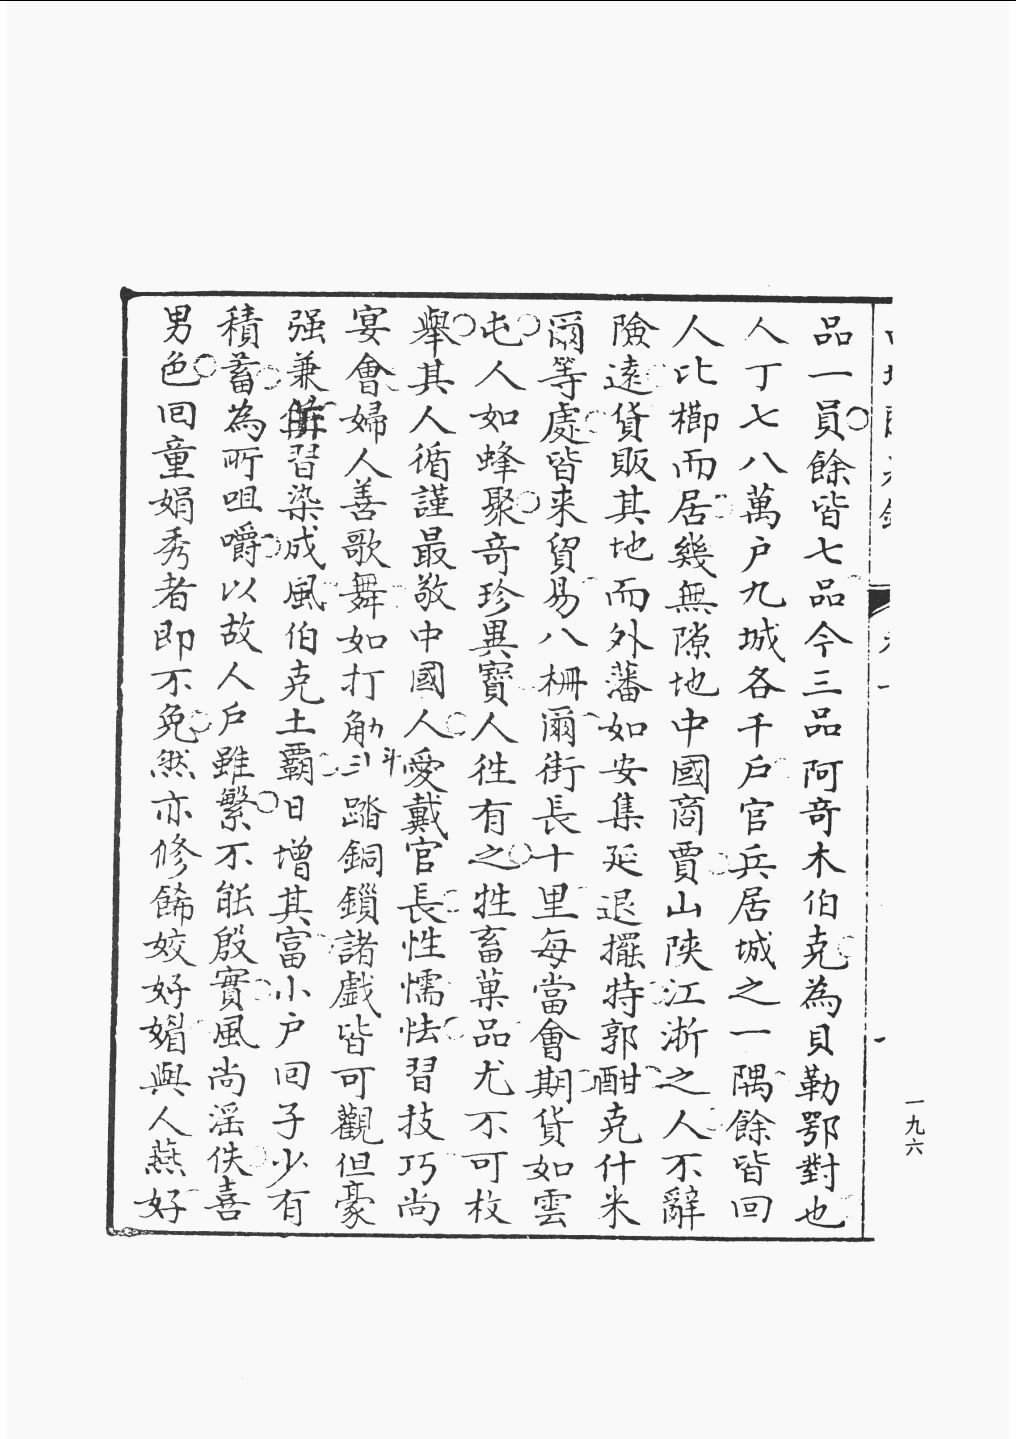 品一員餘皆七品今三品阿竒木伯克為貝勒鄂對也
人丁七八萬户九城各千户官兵居城之一隅餘皆回
人比櫛而居幾無隙地中國商賈山陜江浙之人不辭
險遠貨販其地而外藩如安集延退擺特郭酣克什米
爾等處皆来貿易八栅爾街長十里每當會期貨如雲
屯人如蜂聚竒珍異寶人徃有之牲畜菓品尤不可枚
舉其人循謹最敬中國人愛戴官長性懦怯習技巧尚
宴會婦人善歌舞如打觔斗踏銅鎻諸戲皆可觀但豪
强兼併習染成風伯克土霸日增其富小户回子少有
積蓄為所咀嚼以故人户雖繁不能殷實風尚淫佚喜
男色回童娟秀者即不免然亦修餙姣好媚與人燕好
一九六